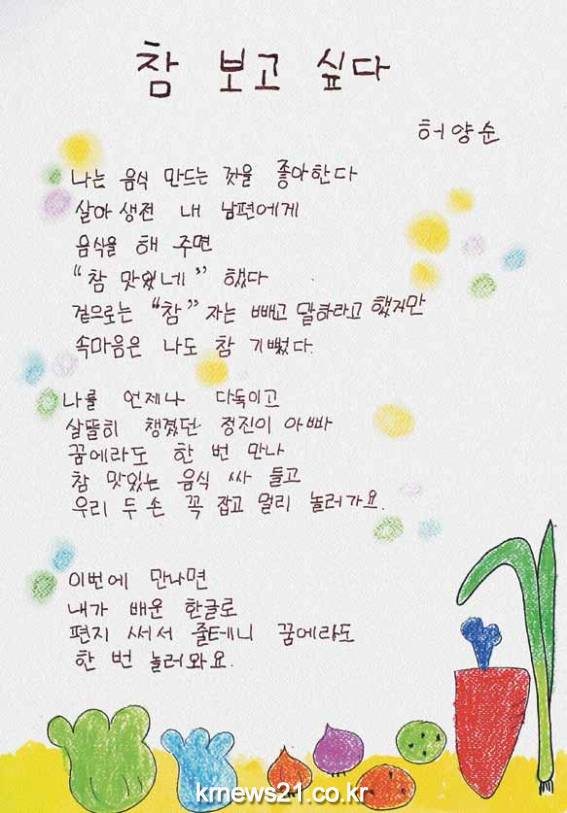 참 보고 싶다
허양순
나는 음식 만드는 것을 좋아한다
살아생전 내 남편에게
음식을 해 주면
“참 맛있네” 했다
겉으로는 “참” 자는 빼고 말하라고 했지만
속마음은 나도 참 기뻤다.
나를 언제나 다독이고
살뜰히 챙겼던 정진이 아빠
꿈에라도 한 번 만나
참 맛있는 음식 싸 들고
우리 두 손 꼭 잡고 멀리 놀러가요.
이번에 만나면
내가 배운 한글로
편지 써서 줄테니 꿈에라도
한 번 놀러와요.
krnews21.co.kr